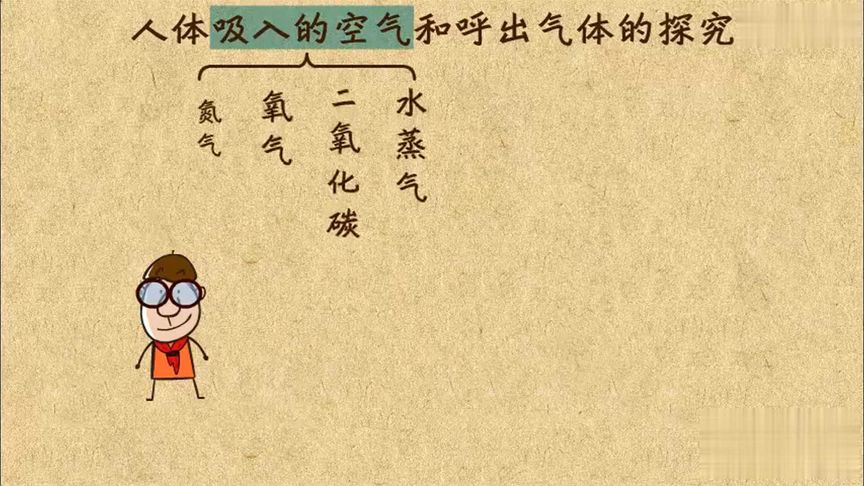 人体吸入的空气和呼出气体的探究
氮气
氧气
二氧化碳
水蒸气